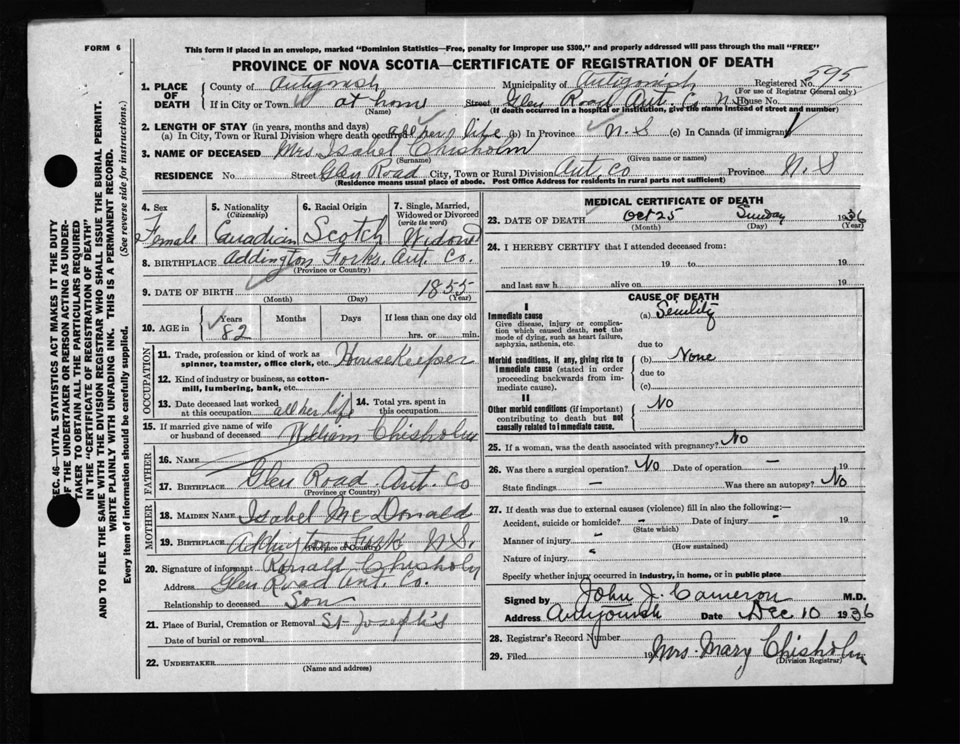 FORM 6
This form if placed in an envelope, marked "Dominion Statistics—Free, penalty for improper use $300," and properly addressed will pass through the mail "FREE"
PROVINCE OF NOVA SCOTIA—CERTIFICATE OF REGISTRATION OF DEATH
1. PLACE OF DEATH County of Antigonish Municipality of Antigonish Registered No. 595
(For use of Registrar General only)
If in City or Town at home Street Glen Road Ant. Co N. House No.
(Name) (If death occurred in a hospital or institution, give the name instead of street and number)
2. LENGTH OF STAY (in years, months and days)
(a) In City, Town or Rural Division where death occurred all her life (b) In Province N.S (c) In Canada (if immigrant)
3. NAME OF DECEASED Mrs. Isabel Chisholm
(Surname) (Given name or names)
RESIDENCE No Street Glen Road City, Town or Rural Division Ant. Co Province N.S
(Residence means usual place of abode. Post Office Address for residents in rural parts not sufficient)
4. Sex 5. Nationality (Citizenship) 6. Racial Origin 7. Single, Married, Widowed or Divorced (write the word)
Female Canadian Scotch Widow
8. BIRTHPLACE Addington Forks. Ant. Co.
(Province or Country)
9. DATE OF BIRTH 1855
(Month) (Day) (Year)
10. AGE in Years Months Days If less than one day old
82 hrs. or min.
OCCUPATION
11. Trade, profession or kind of work as spinner, teamster, office clerk, etc. Housekeeper
12. Kind of industry or business, as cotton-mill, lumbering, bank, etc.
13. Date deceased last worked at this occupation all her life 14. Total yrs. spent in this occupation
15. If married give name of wife or husband of deceased William Chisholm
FATHER
16. NAME
17. BIRTHPLACE Glen Road. Ant. Co
(Province or Country)
MOTHER
18. MAIDEN NAME Isabel McDonald
19. BIRTHPLACE Addington Fork N.S.
(Province or Country)
20. Signature of informant Ronald Chisholm
Address Glen Road Ant. Co.
Relationship to deceased Son
21. Place of Burial, Cremation or Removal St Joseph's
Date of burial or removal
22. UNDERTAKER
(Name and address)
MEDICAL CERTIFICATE OF DEATH
23. DATE OF DEATH Oct 25 Sunday 1936
(Month) (Day) (Year)
24. I HEREBY CERTIFY that I attended deceased from:
19 to 19
and last saw h alive on 19
CAUSE OF DEATH
I
Immediate cause (a) Senility
Give disease, injury or complication which caused death, not the mode of dying, such as heart failure, asphyxia, asthenia, etc.
due to
Morbid conditions, if any, giving rise to immediate cause (stated in order proceeding backwards from immediate cause). (b) None
due to
(c)
II
Other morbid conditions (if important) contributing to death but not causally related to immediate cause. No
25. If a woman, was the death associated with pregnancy? No
26. Was there a surgical operation? No Date of operation – 19
State findings – Was there an autopsy? No
27. If death was due to external causes (violence) fill in also the following:—
Accident, suicide or homicide? – Date of injury – 19
(State which)
Manner of injury –
(How sustained)
Nature of injury
Specify whether injury occurred in industry, in home, or in public place
Signed by John J. Cameron M.D.
Address Antigonish Date Dec 10 1936
28. Registrar's Record Number
29. Filed 19 Mrs. Mary Chisholm
(Division Registrar)
SEC. 46—VITAL STATISTICS ACT MAKES IT THE DUTY
OF THE UNDERTAKER OR PERSON ACTING AS UNDER-
TAKER TO OBTAIN ALL THE PARTICULARS REQUIRED
IN THE "CERTIFICATE OF REGISTRATION OF DEATH"
AND TO FILE THE SAME WITH THE DIVISION REGISTRAR WHO SHALL ISSUE THE BURIAL PERMIT.
WRITE PLAINLY WITH UNFADING INK. THIS IS A PERMANENT RECORD.
Every item of information should be carefully supplied. (See reverse side for instructions.)